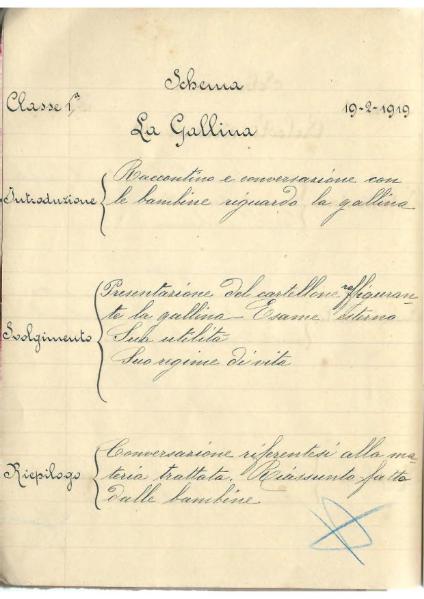 Schema
Classe 1ª 19-2-1919
La Gallina
Introduzione
Raccontino e conversazione con
le bambine riguardo la gallina
Svolgimento
Presentazione del cartellone raffiguran-
te la gallina - Esame esterno
Sua utilità
Suo regime di vita
Riepilogo
Conversazione riferentesi alla ma-
teria trattata. Riassunto fatto
dalle bambine